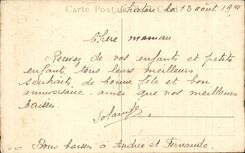 Carte Postale
le 13 août 19
Chère maman
Recevez de vos enfants et petits
enfants tous leurs meilleurs
souhaits de bonne fête et bon
anniversaire ainsi que nos meilleurs
baisers
Bons baisers à Andrée et Fernande